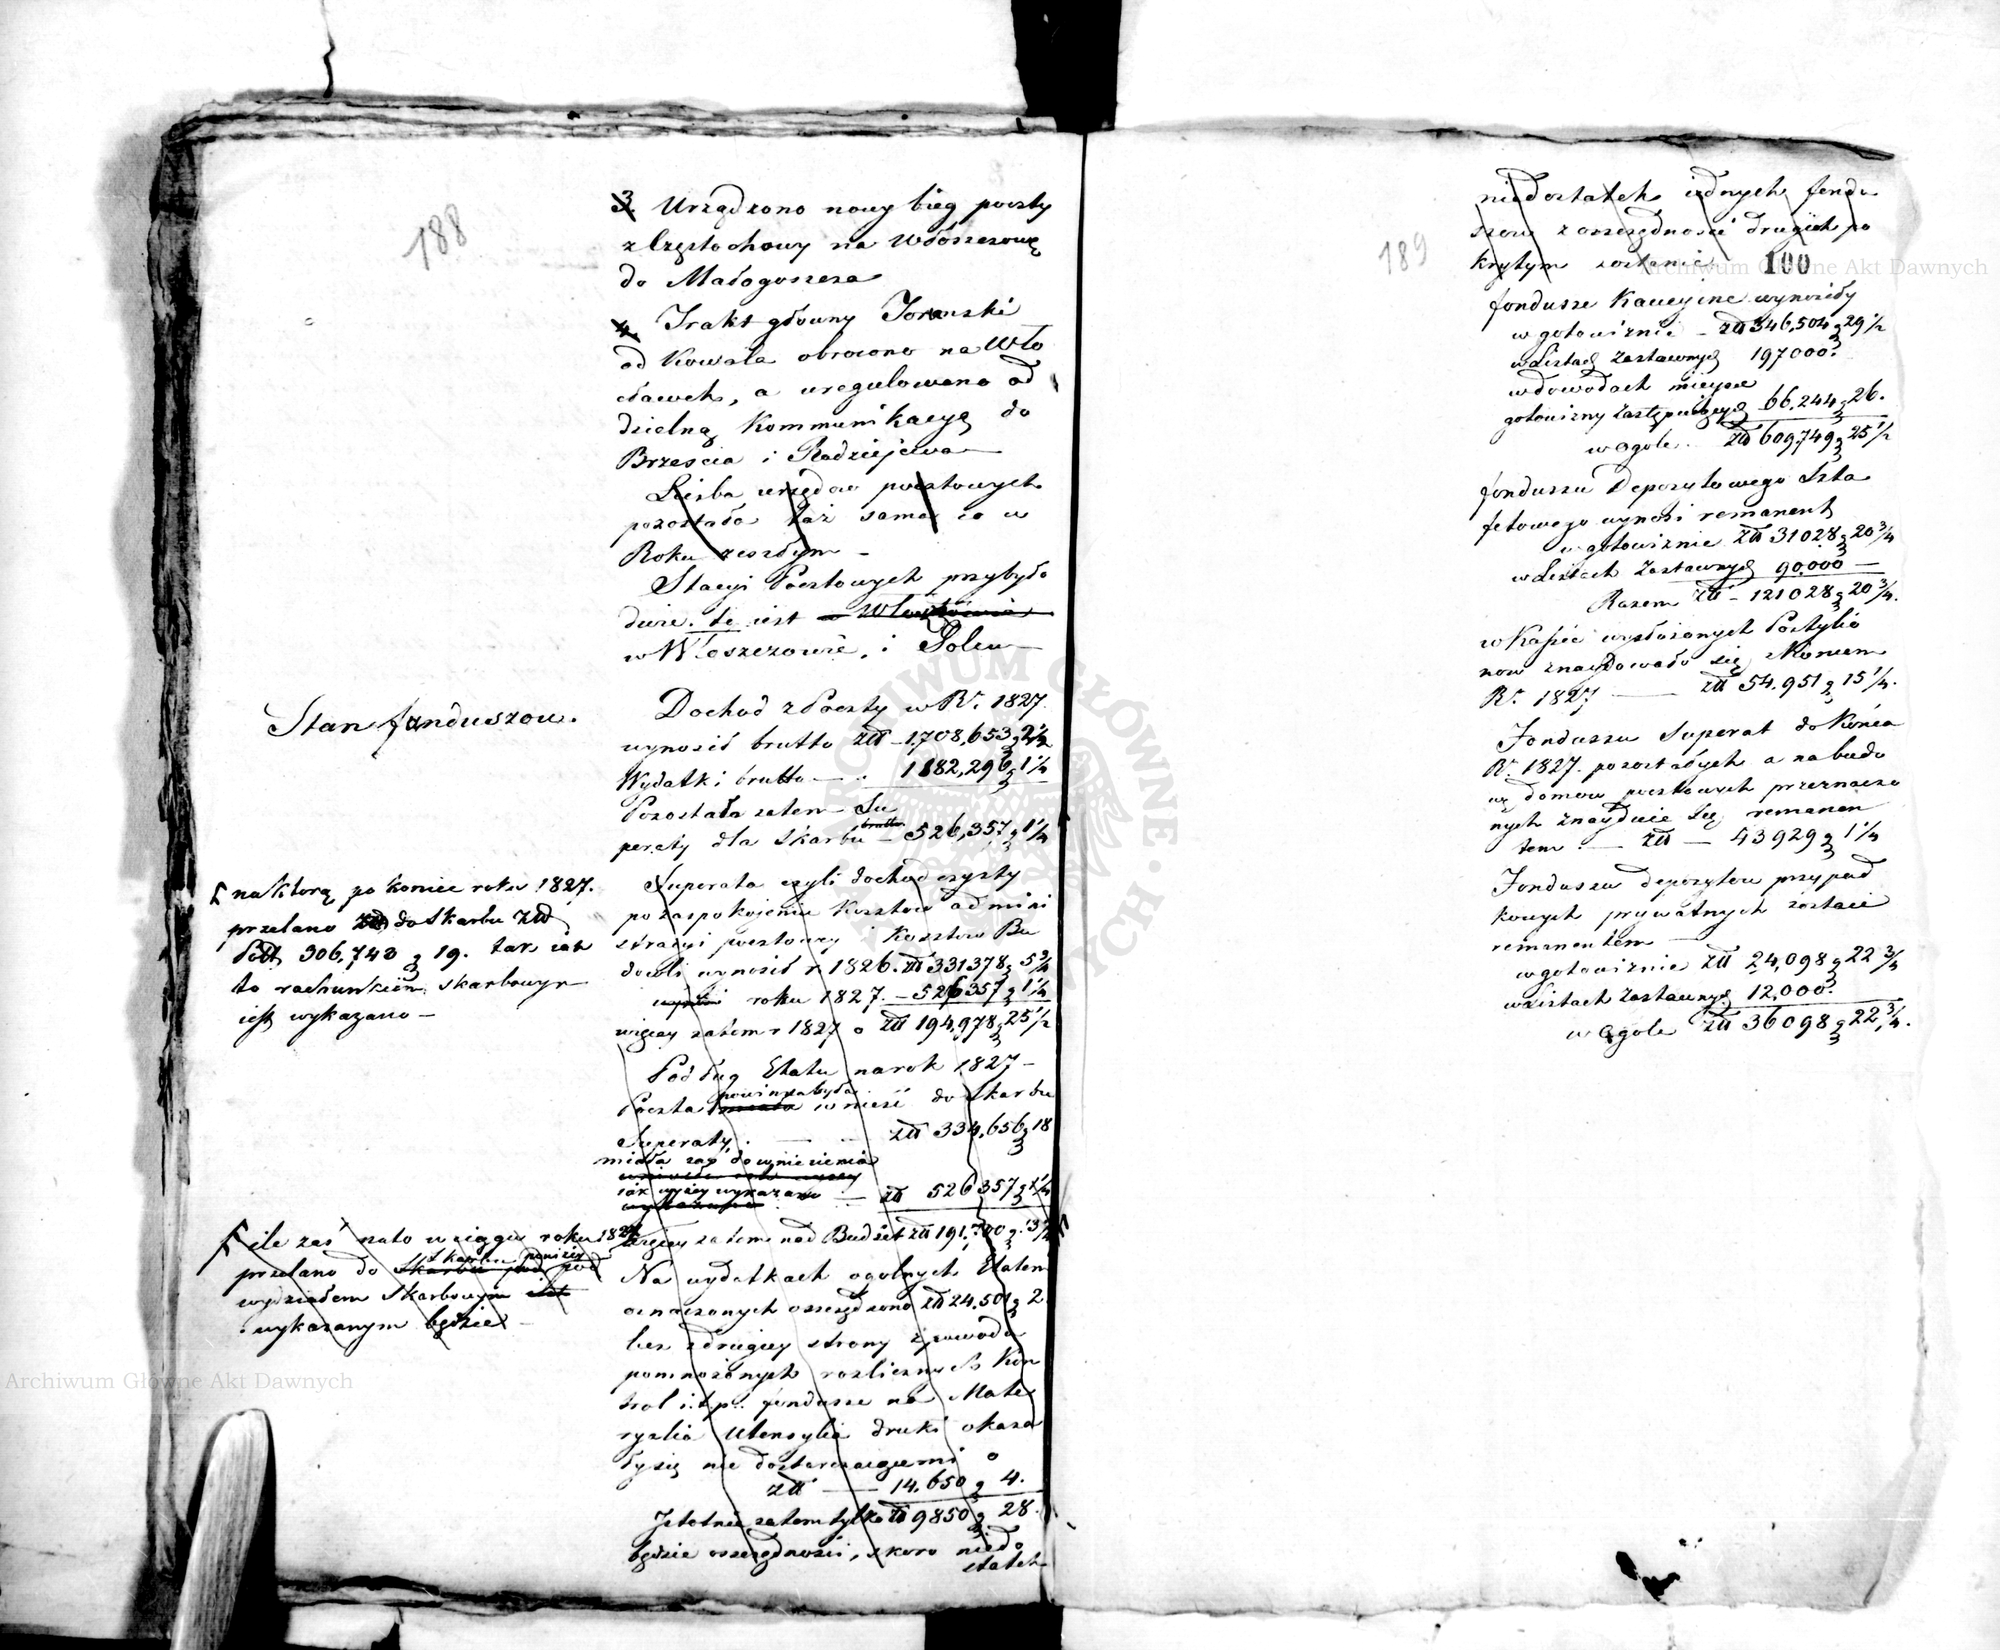 188
3. Urządzono nowy bieg poczty
z Częstochowy na Włoszczowę
do Małogoszcza
4. Trakt główny Toruński
od Kowala obrócono na Wło
cławek, a uregulowano od
dzielną Kommunikacyą do
Brześcia i Radziejewa —
Liczba urzędów pocztowych
pozostała taż sama co w
Roku zeszłym —
Stacyi Pocztowych przybyło
dwie. to iest
w Włoszczowie, i Solcu —
Stan funduszow.
Dochod z Poczty w R. 1827
wynosił brutto złł — 1,708,653 g 2 1/2
Wydatki brutto — . 1182,296 g 1 1/4
Pozostała zatem Su
peraty dla Skarbu brutto — 526,357 g 1 1/4
na którą po koniec roku 1827.
przelano do Skarbu złł
Pol 306,743 g 19. iak iest
to rachunkiem skarbowym
iest wykazano —
Superata czyli dochod czysty
po zaspokojeniu Kosztów admini
stracyi pocztowey i Kosztow Bu
dowli wynosił r. 1826. złł 331378 g 5 3/4
roku 1827. — 526357 g 1 1/4
więcey zatem r 1827 o złł 194,978 g 25 1/2
Podług Etatu na rok 1827 —
powinna była
Poczta wnieść do Skarbu
Superaty. — złł 334,656 g 18
miała zaś do wniesienia
iak wyżey wykazano — złł 526357 g 1 1/4
więcey zatem nad Budżet złł 191,700 g 13 1/4
ile zaś na to w ciągu roku 1827
Skarbu poniżey
przelano do pod
wydziałem Skarbowym
wykazanym będzie —
Na wydatkach ogólnych Etatem
oznaczonych oszczędzono złł 24,501 g 2
lecz z drugiey strony z powodu
pomnożonych rozlicznych Kon
trol i.t.p. fundusze na Mate
ryalia Utensylia druki okaza
ły się nie dostarczaiącemi o
złł — 14.650 g 4.
Istotnie zatem tylko złł 9850 g 28.
będzie oszczędności, skoro niedo
statek
189
niedostatek iednych fundu
szow z oszczędności drugich po
krytym zostanie
100
fundusze Kaucyine wynosiły
w gotowiznie — złł 346,504 g 29 1/2
w Listach Zastawnych 197000.
w dowodach mieysce
gotowizny zastępuiących 66,244 g 26.
w ogole . złł 609,749 g 25 1/2
funduszu Depozytowego Szta
fetowego wynosi remanent
w gotowiznie złł 31028 g 20 3/4
w Listach Zastawnych 90.000 —
Razem złł — 121028 g 20 3/4.
w Kassie wysłużonych Postylio
now znaydowało się z Koncem
R. 1827 — złł 54.951 g 15 1/4.
Funduszu Superat do Końca
R. 1827. pozostałych a na budo
wę domow pocztowych przeznaczo
nych znayduie się remanen
tem . — złł — 43929 g 1 1/4
Funduszu depozytow przypad
kowych prywatnych zostaie
remanentem —
w gotowiznie złł 24,098 g 22 3/4
w Listach Zastawnych 12,000.
w Ogole złł 36098 g 22 3/4.
ARCHIWUM GŁÓWNE AKT DAWNYCH
Archiwum Główne Akt Dawnych
Archiwum Główne Akt Dawnych